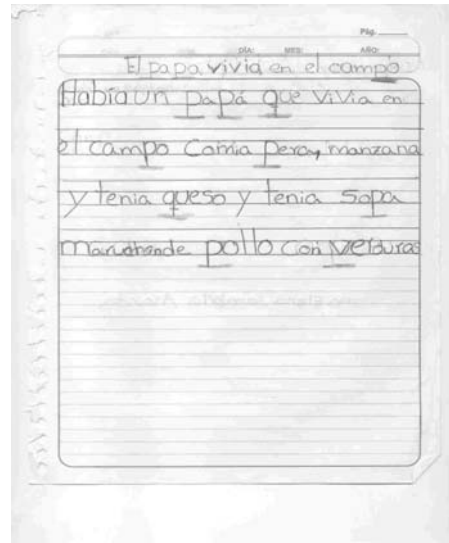 Pág.
DÍA: MES: AÑO:
El papa vivia en el campo
Había un papá que vivia en
el campo Comia pera, manzana
y tenia queso y tenia sopa
maruchande pollo con verduras